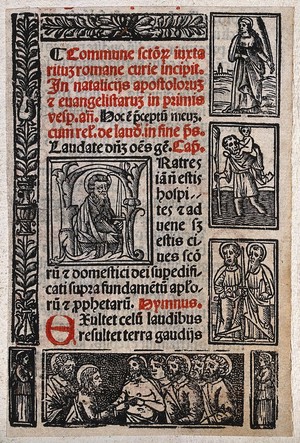 ¶ Commune sctōꝝ iuxta
rituꝫ romane curie incipit.
In natalicijs apostoloruꝫ
⁊ euangelistaruꝫ in primis
vesp. añ. Hoc ē p̄ceptū meuꝫ.
cum rel. de laud. in fine p̄s.
Laudate dn̄ꝫ oēs gē. Cap.
FRatres
iā nō estis
hospi-
tes ⁊ ad
vene sꝫ
estis ci
ues scō
rū ⁊ domestici dei supedifi-
cati supra fundamētū aplo-
rū ⁊ ꝓphetarū. Hymnus.
EXultet celū laudibus
resultet terra gaudijs